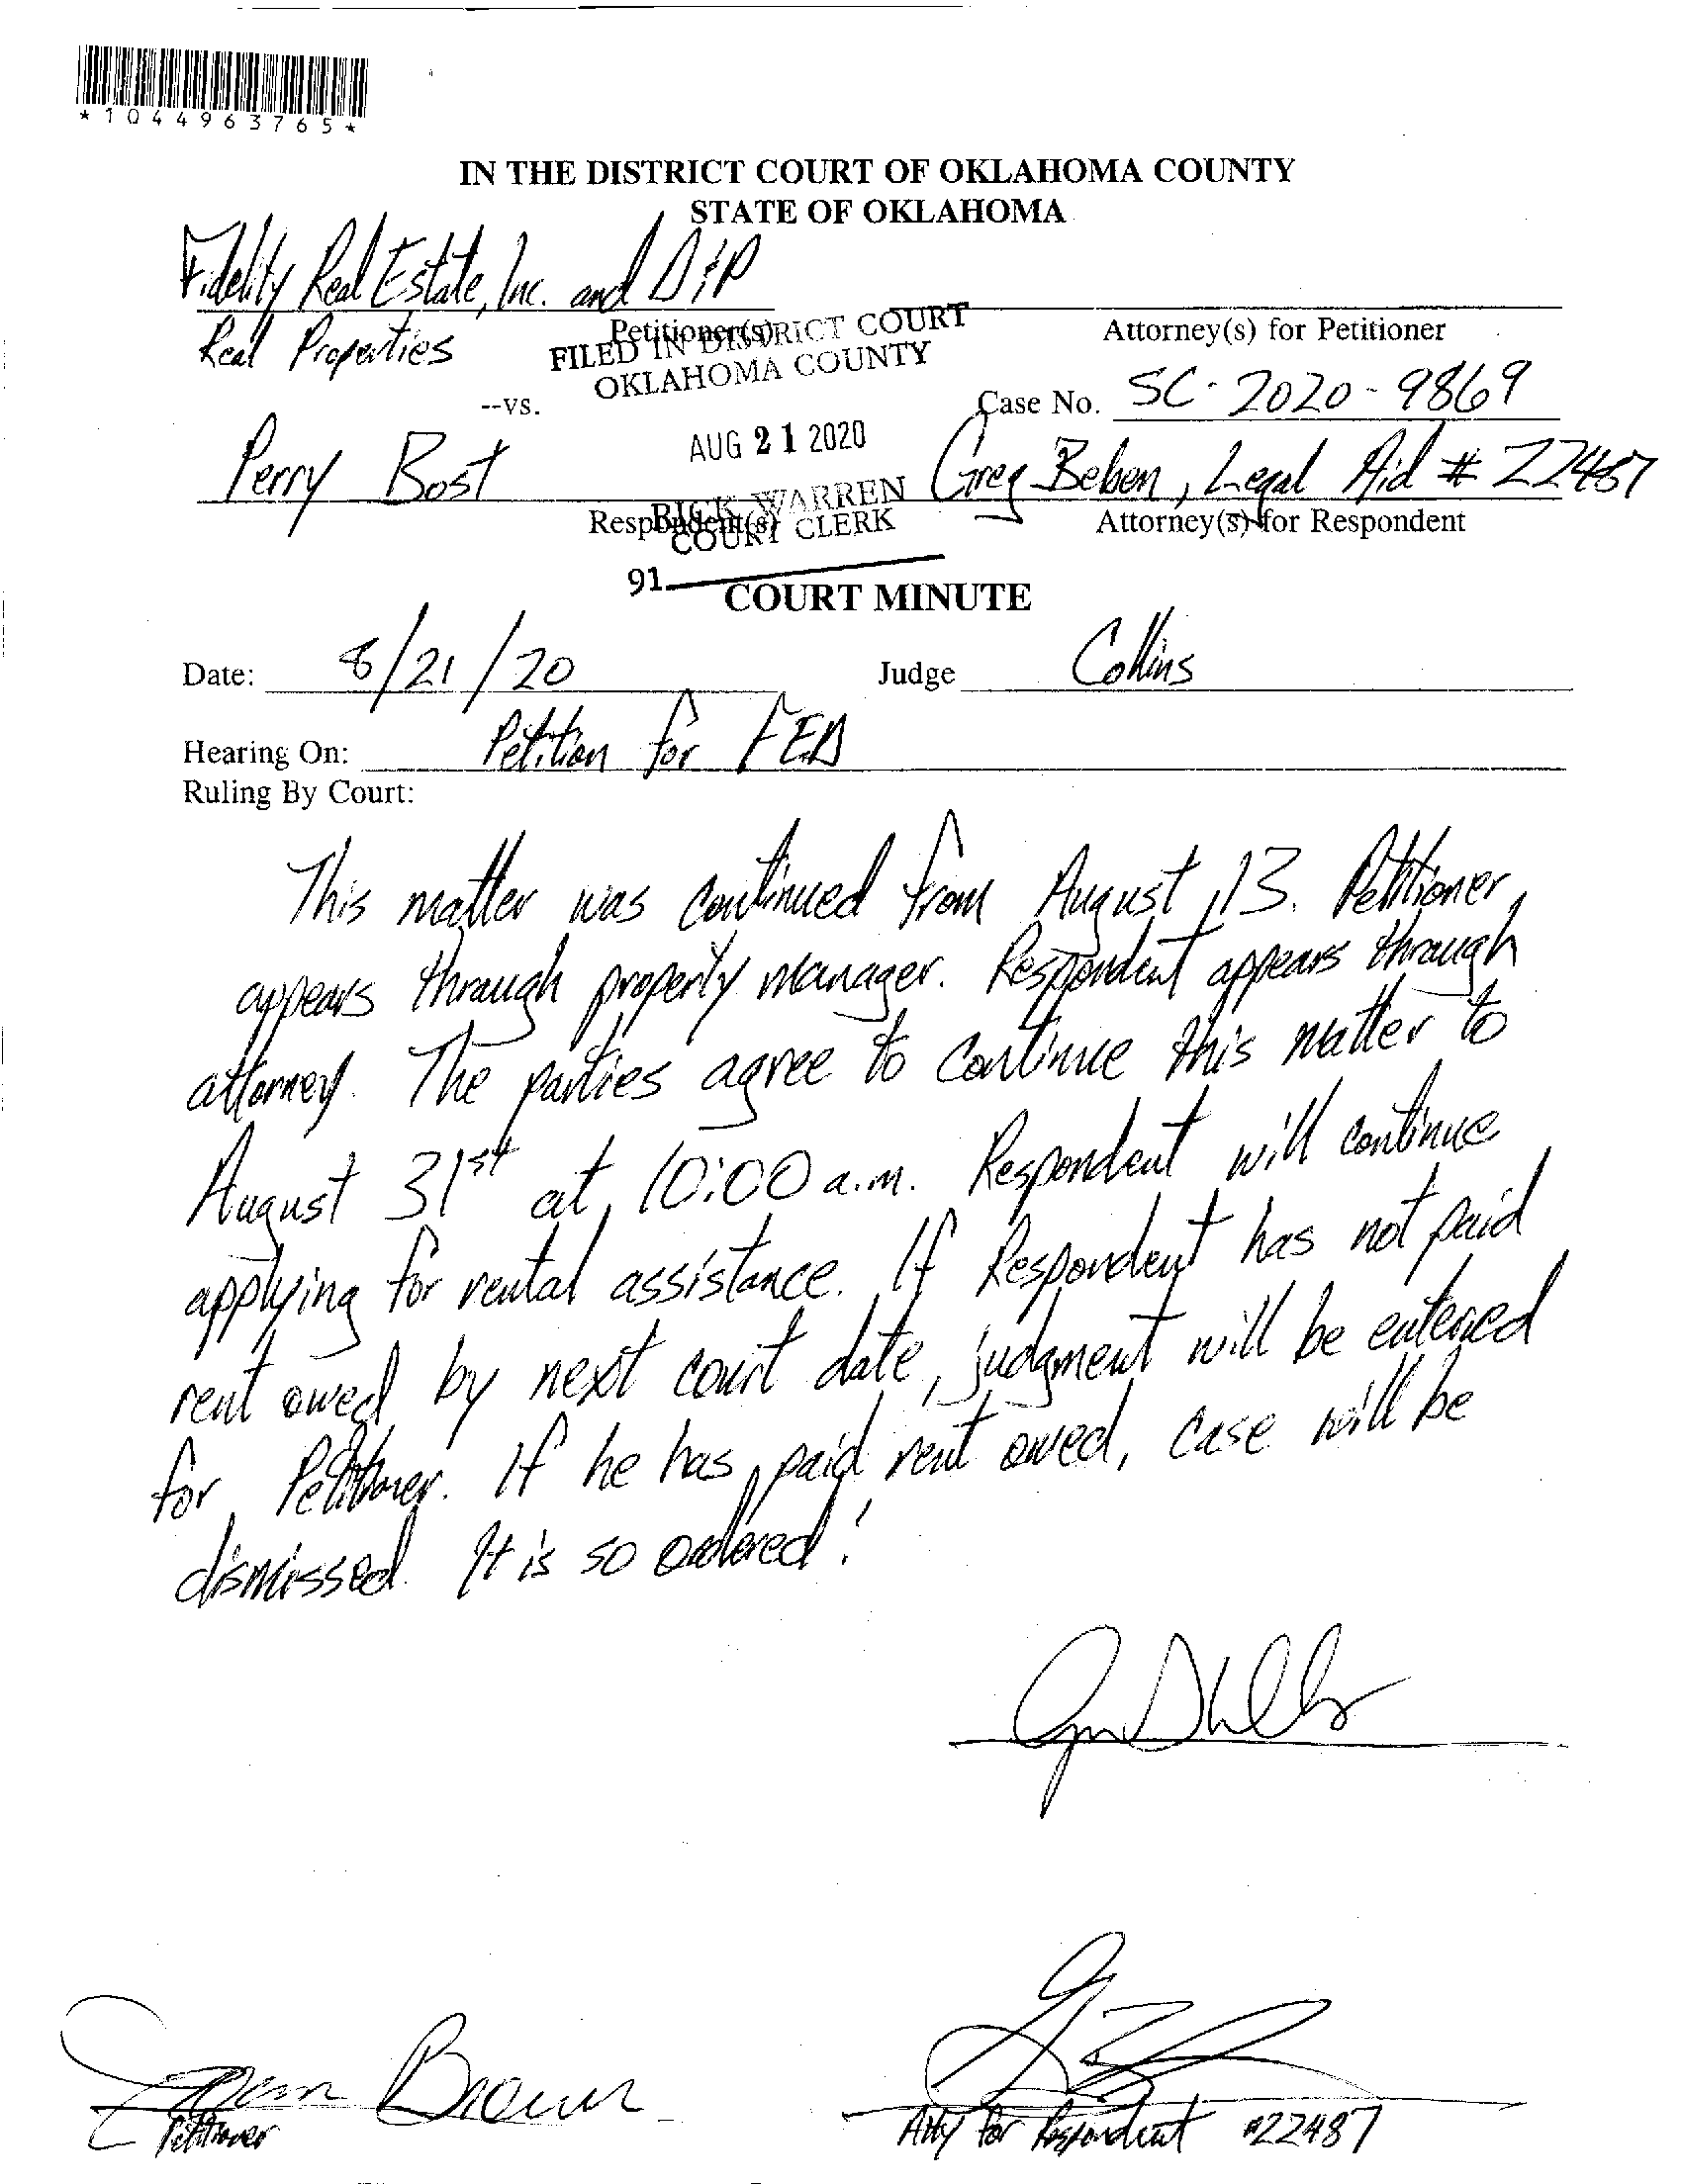 *1044963765*
IN THE DISTRICT COURT OF OKLAHOMA COUNTY
STATE OF OKLAHOMA
Fidelity Real Estate, Inc. and D&P
Real Properties
Petitioner(s)
Attorney(s) for Petitioner
FILED IN DISTRICT COURT
OKLAHOMA COUNTY
--vs.
Case No. SC-2020-9869
AUG 21 2020
Perry Bost
Greg Beben, Legal Aid # 22487
RICK WARREN
Respondent(s)
Attorney(s) for Respondent
COURT CLERK
91
COURT MINUTE
Date: 8/21/20 Judge Collins
Hearing On: Petition for FED
Ruling By Court:
This matter was continued from August 13. Petitioner
appears through property manager. Respondent appears through
attorney. The parties agree to continue this matter to
August 31st at 10:00 a.m. Respondent will continue
applying for rental assistance. If Respondent has not paid
rent owed by next court date, judgment will be entered
for Petitioner. If he has paid rent owed, case will be
dismissed. It is so ordered!
Brown
Petitioner
Atty for Respondent #22487